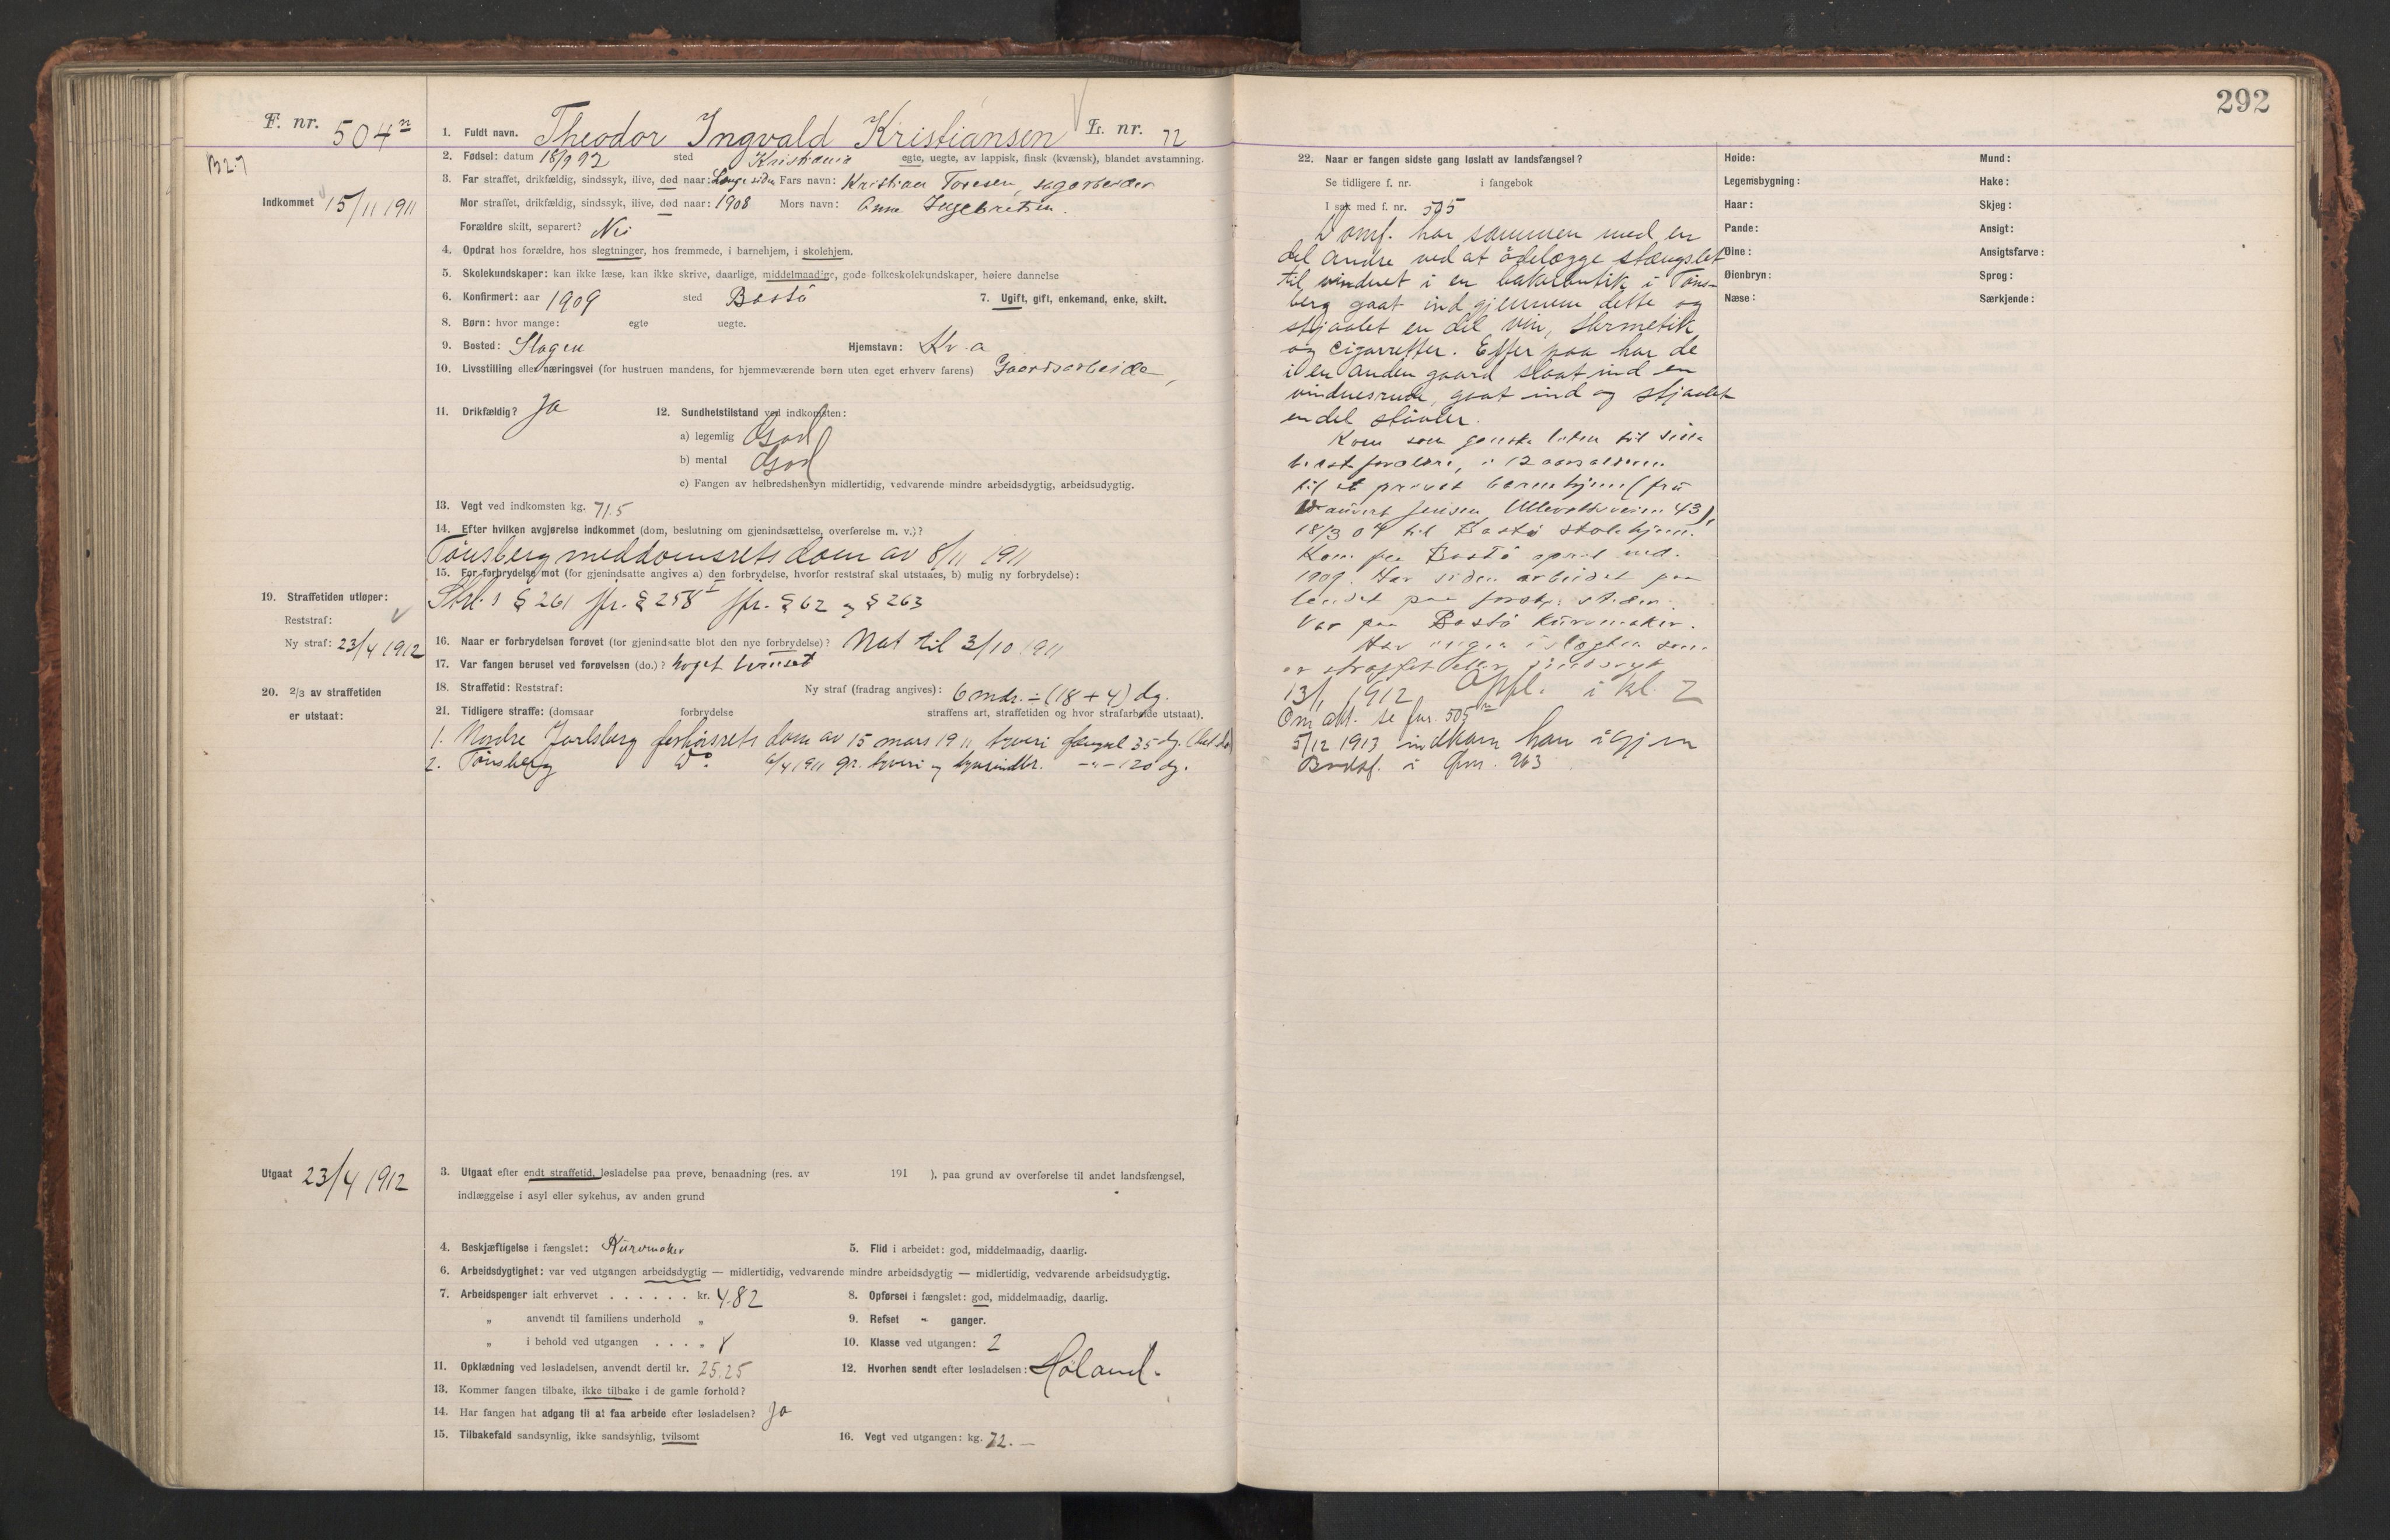 292
F. nr. 504ⁿ
B 27
Indkommet 15/11 1911
1. Fuldt navn. Theodor Ingvald Kristiansen L. nr. 72
2. Fødsel: datum 18/9 92 sted Kristiania egte, uegte, av lappisk, finsk (kvænsk), blandet avstamning.
3. Far straffet, drikfældig, sindssyk, ilive, død naar: Længe siden Fars navn: Kristian Toresen, sagarbeider
Mor straffet, drikfældig, sindssyk, ilive, død naar: 1908 Mors navn: Anne Ingebretsen.
Forældre skilt, separert? Nei
4. Opdrat hos forældre, hos slegtninger, hos fremmede, i barnehjem, i skolehjem.
5. Skolekundskaper: kan ikke læse, kan ikke skrive, daarlige, middelmaadige, gode folkeskolekundskaper, høiere dannelse
6. Konfirmert: aar 1909 sted Bastö 7. Ugift, gift, enkemand, enke, skilt.
8. Børn: hvor mange: egte uegte.
9. Bosted: Slagen Hjemstavn: Kr.a
10. Livsstilling eller næringsvei (for hustruen mandens, for hjemmeværende børn uten eget erhverv farens) Gaardsarbeider
11. Drikfældig? Ja 12. Sundhetstilstand ved indkomsten:
a) legemlig God
b) mental God
c) Fangen av helbredshensyn midlertidig, vedvarende mindre arbeidsdygtig, arbeidsudygtig.
13. Vegt ved indkomsten kg. 71.5
14. Efter hvilken avgjørelse indkommet (dom, beslutning om gjenindsættelse, overførelse m. v.)?
Tönsberg meddomsrets dom av 8/11 1911
15. For forbrydelse mot (for gjenindsatte angives a) den forbrydelse, hvorfor reststraf skal utstaaes, b) mulig ny forbrydelse):
Strl.s § 261 jfr. § 258 I jfr. § 62 og § 263
19. Straffetiden utløper:
Reststraf:
Ny straf: 23/4 1912
16. Naar er forbrydelsen forøvet (for gjenindsatte blot den nye forbrydelse)? Nat til 3/10 1911
17. Var fangen beruset ved forøvelsen (do.)? Noget beruset
18. Straffetid: Reststraf: Ny straf (fradrag angives): 6 mdr. ÷ (18 + 4) dg.
20. 2/3 av straffetiden
er utstaat:
21. Tidligere straffe: (domsaar forbrydelse straffens art, straffetiden og hvor strafarbeide utstaat).
1. Nordre Jarlsberg forhörsrets dom av 15 mars 1911 tyveri fængsel 35 dg.
2. Tönsberg Do 6/4 1911 gr. tyveri og tyvsindbr. -"- 120 dg.
Utgaat 23/4 1912
3. Utgaat efter endt straffetid, løsladelse paa prøve, benaadning (res. av 191 ), paa grund av overførelse til andet landsfængsel,
indlæggelse i asyl eller sykehus, av anden grund
4. Beskjæftigelse i fængslet: Kurvmaker 5. Flid i arbeidet: god, middelmaadig, daarlig.
6. Arbeidsdygtighet: var ved utgangen arbeidsdygtig — midlertidig, vedvarende mindre arbeidsdygtig — midlertidig, vedvarende arbeidsudygtig.
7. Arbeidspenger ialt erhvervet . . . . . . kr. 4.82 8. Opførsel i fængslet: god, middelmaadig, daarlig.
„ anvendt til familiens underhold „ 9. Refset - ganger.
„ i behold ved utgangen . . . . „ 10. Klasse ved utgangen: 2
11. Opklædning ved løsladelsen, anvendt dertil kr. 25.25 12. Hvorhen sendt efter løsladelsen: Höland.
13. Kommer fangen tilbake, ikke tilbake i de gamle forhold?
14. Har fangen hat adgang til at faa arbeide efter løsladelsen? Ja
15. Tilbakefald sandsynlig, ikke sandsynlig, tvilsomt 16. Vegt ved utgangen: kg. 72. —
22. Naar er fangen sidste gang løslatt av landsfængsel?
Se tidligere f. nr. i fangebok
I sak med f. nr. 505
Domf. har sammen med en
del andre ved at ödelægge stængslet
til vinduet i en bakerbutik i Töns-
berg gaat ind gjennem dette og
stjaalet en del vin, hermetik
og cigarretter. Efter paa har de
i en anden gaard slaat ind en
vinduesrude, gaat ind og stjaalet
en del stövler.
Kom som ganske liten til sine
besteforældre, i 12 aarsalderen
til et privat barnehjem (fru
Jensen Ullevoldsveien 43),
18/3 04 til Bastö skolehjem.
Kom fra Bastö april md.
1909. Har siden arbeidet paa
landet paa forskj. steder.
Var paa Bastö kurvmaker.
Har ingen i slægten som
er straffet eller sindssyk
13/1 1912 Opfl. i kl. 2
Om akt. se fnr. 505ⁿ
5/12 1913 indkom han igjen
Bodsf. i fnr. 263
Høide:
Legemsbygning:
Haar:
Pande:
Øine:
Øienbryn:
Næse:
Mund:
Hake:
Skjeg:
Ansigt:
Ansigtsfarve:
Sprog:
Særkjende: